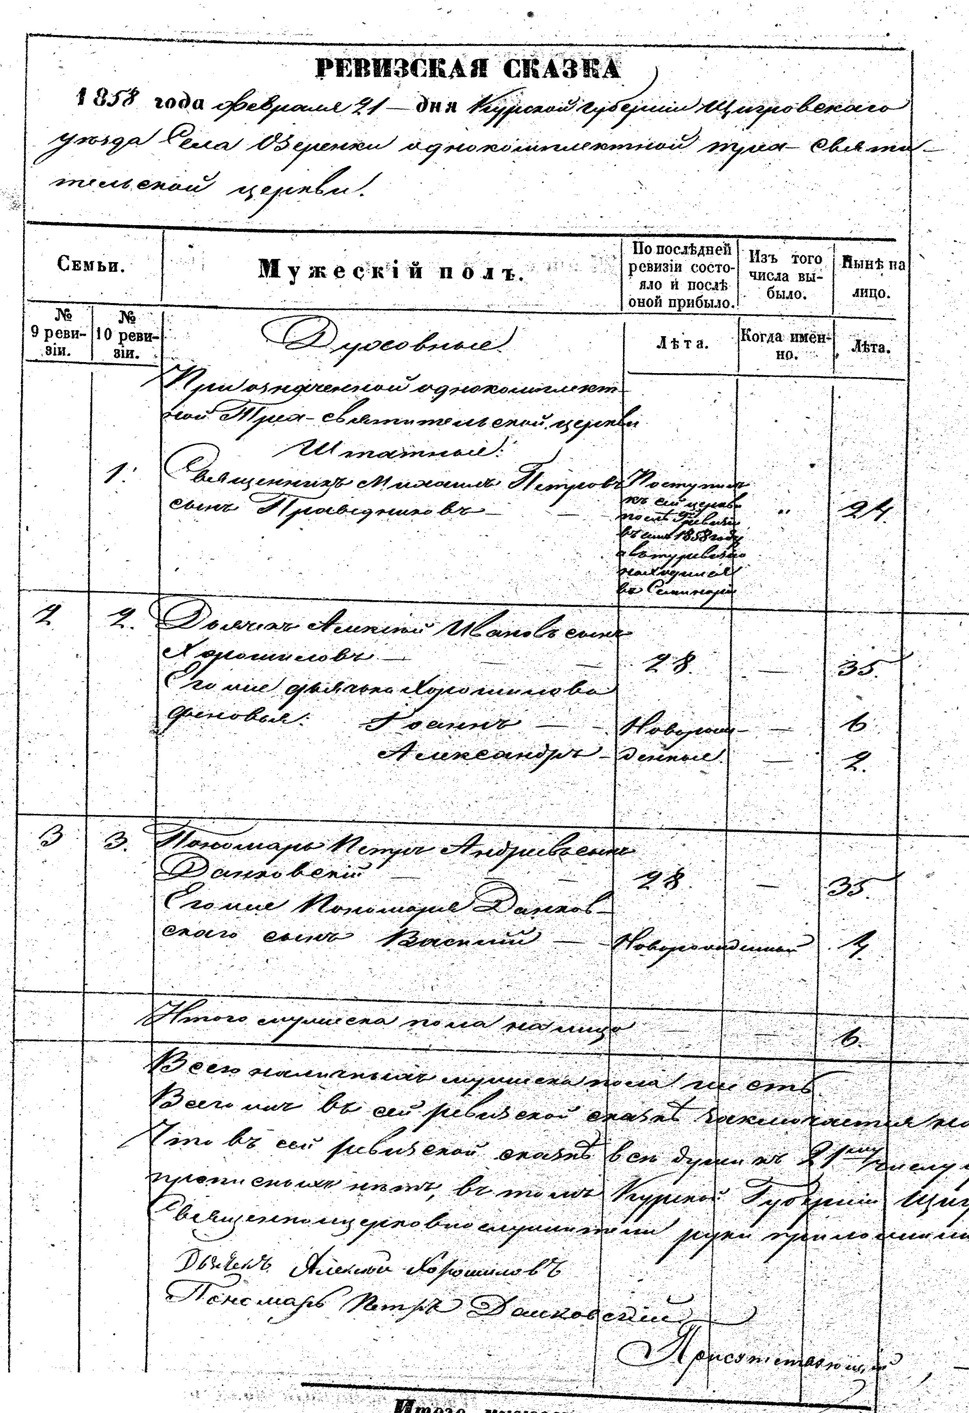 РЕВИЗСКАЯ СКАЗКА
1858 года Февраля 21 – дня Курской Губернiи Щигровскаго
уѣзда Села Озеренки однокомплектной трех-святи-
тельской церкви.
Семьи.
Мужескiй полъ.
По послѣдней ревизiи состо-
яло и послѣ оной прибыло.
Изъ того числа вы-
было.
Нынѣ на лицо.
№ 9 реви-
зiи.
№ 10 реви-
зiи.
Духовные.
Лѣта.
Когда имен-
но.
Лѣта.
При означенной однокомплект-
ной Трех-святительской церкви
Штатные:
1. Священникъ Михаилъ Петровъ
сынъ Праведниковъ – – 24.
Поступилъ
къ сей церкви
послѣ 9й ревизiи
въ 1858 году
а въ ту ревизiю
находился
въ Семинарiи
2 2. Дьячекъ Алексѣй Ивановъ сынъ
Хорошиловъ – – – 28. – 35.
Его же дьячька Хорошилова
сыновья: Iоаннъ – – Новорож- – 6
Александръ – денные – 2.
3 3. Пономарь Петръ Андреевъ сынъ
Данковскiй – – – 28. – 35.
Его же Пономаря Данков-
скаго сынъ Василiй – Новорожденный
Итого мужеска пола на лицо – – 6.
Всего наличныхъ мужеска пола шесть.
Всего же въ сей ревизской сказкѣ заключается
Что въ сей ревизской сказкѣ всѣ души къ 21му числу
прописныхъ нѣтъ, въ томъ Курской Губернiи
Священноцерковнослужители руки приложили
Дьячекъ Алексѣй Хорошиловъ
Пономарь Петръ Данковскiй
Итого